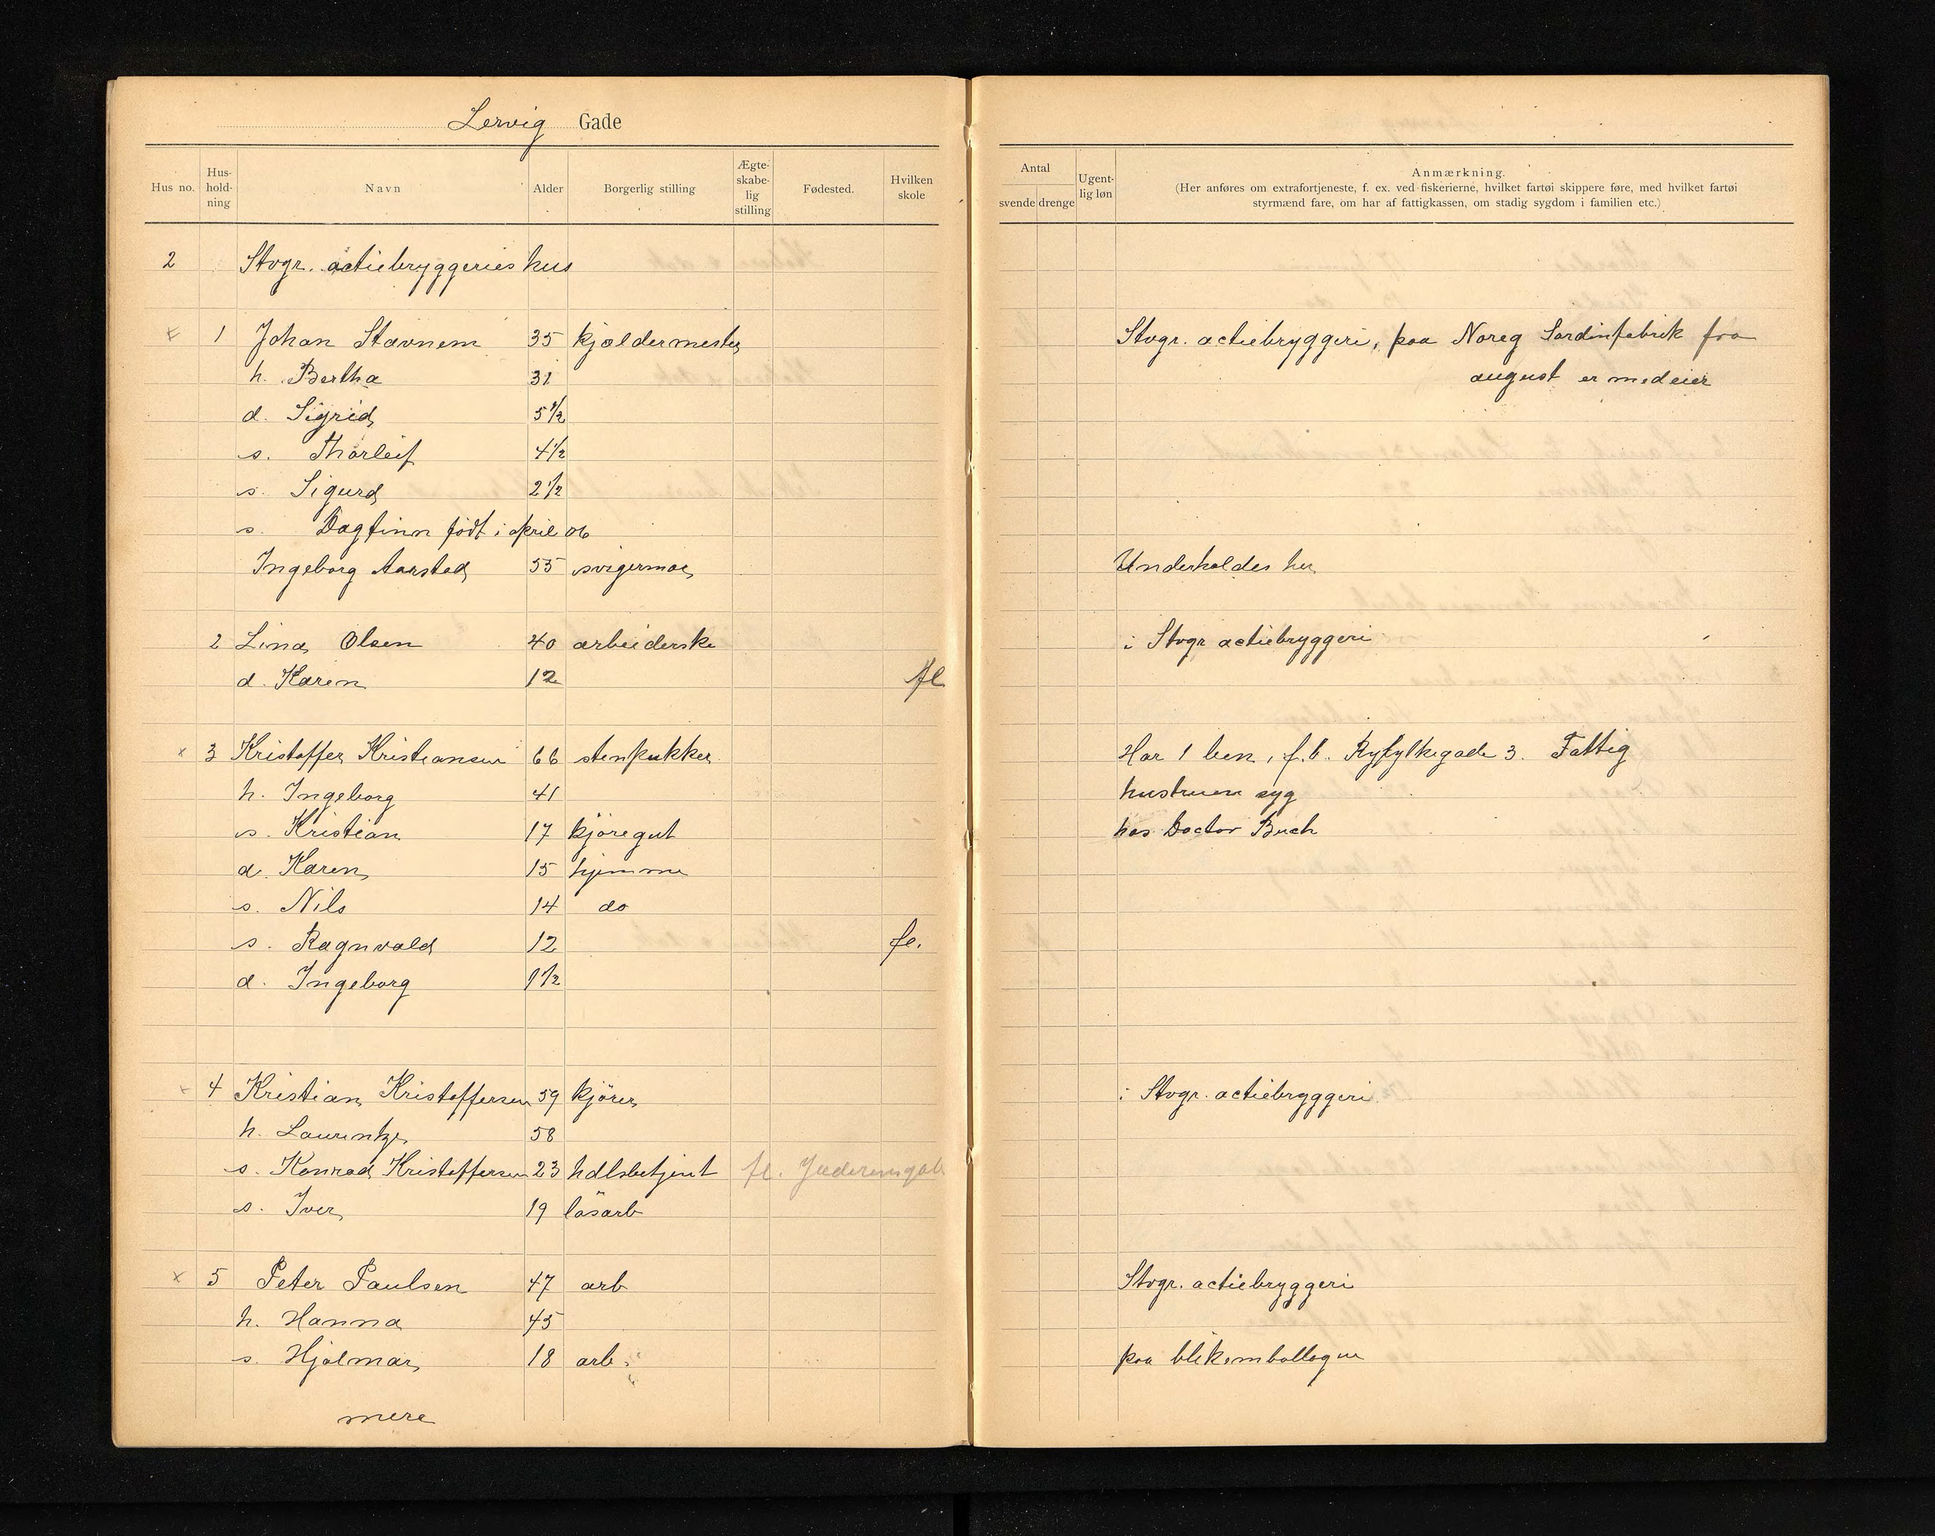 Lervig Gade
Hus no. Hus-hold-ning Navn Alder Borgerlig stilling Ægte-skabe-lig stilling Fødested. Hvilken skole
Antal svende drenge Ugent-lig løn Anmærkning.
(Her anføres om extrafortjeneste, f. ex. ved fiskerierne, hvilket fartøi skippere føre, med hvilket fartøi
styrmænd fare, om har af fattigkassen, om stadig sygdom i familien etc.)
2 Stvgr. actiebryggeries hus
1 Johan Stavnem 35 kjældermester Stvgr. actiebryggeri, paa Noreg Sardinfabrik fra
h. Bertha 31 august er medeier
d. Sigrid 5 1/2
s. Thorleif 4 1/2
s. Sigurd 2 1/2
s. Dagfinn født i april 06
Ingeborg Aarstad 55 svigermor Underholdes her
2 Lina Olsen 40 arbeiderske i Stvgr actiebryggeri
d. Karen 12 fl
x 3 Kristoffer Kristiansen 66 stenpukker. Har 1 ben, f.b. Ryfylkegade 3. Fattig
h. Ingeborg 41 hustruen syg
s. Kristian 17 kjøregut hos Doctor Buch
d. Karen 15 hjemme
s. Nils 14 do
s. Ragnvald 12 fl.
d. Ingeborg 1 1/2
4 Kristian Kristoffersen 59 kjører i Stvgr. actiebryggeri
h. Laurentze 58
s. Konrad Kristoffersen 23 hdlsbetjent fl. Jæderensgade
s. Iver 19 løsarb
x 5 Peter Paulsen 47 arb Stvgr. actiebryggeri
h. Hanna 45
s. Hjalmar 18 arb. paa blikemballagen
mere